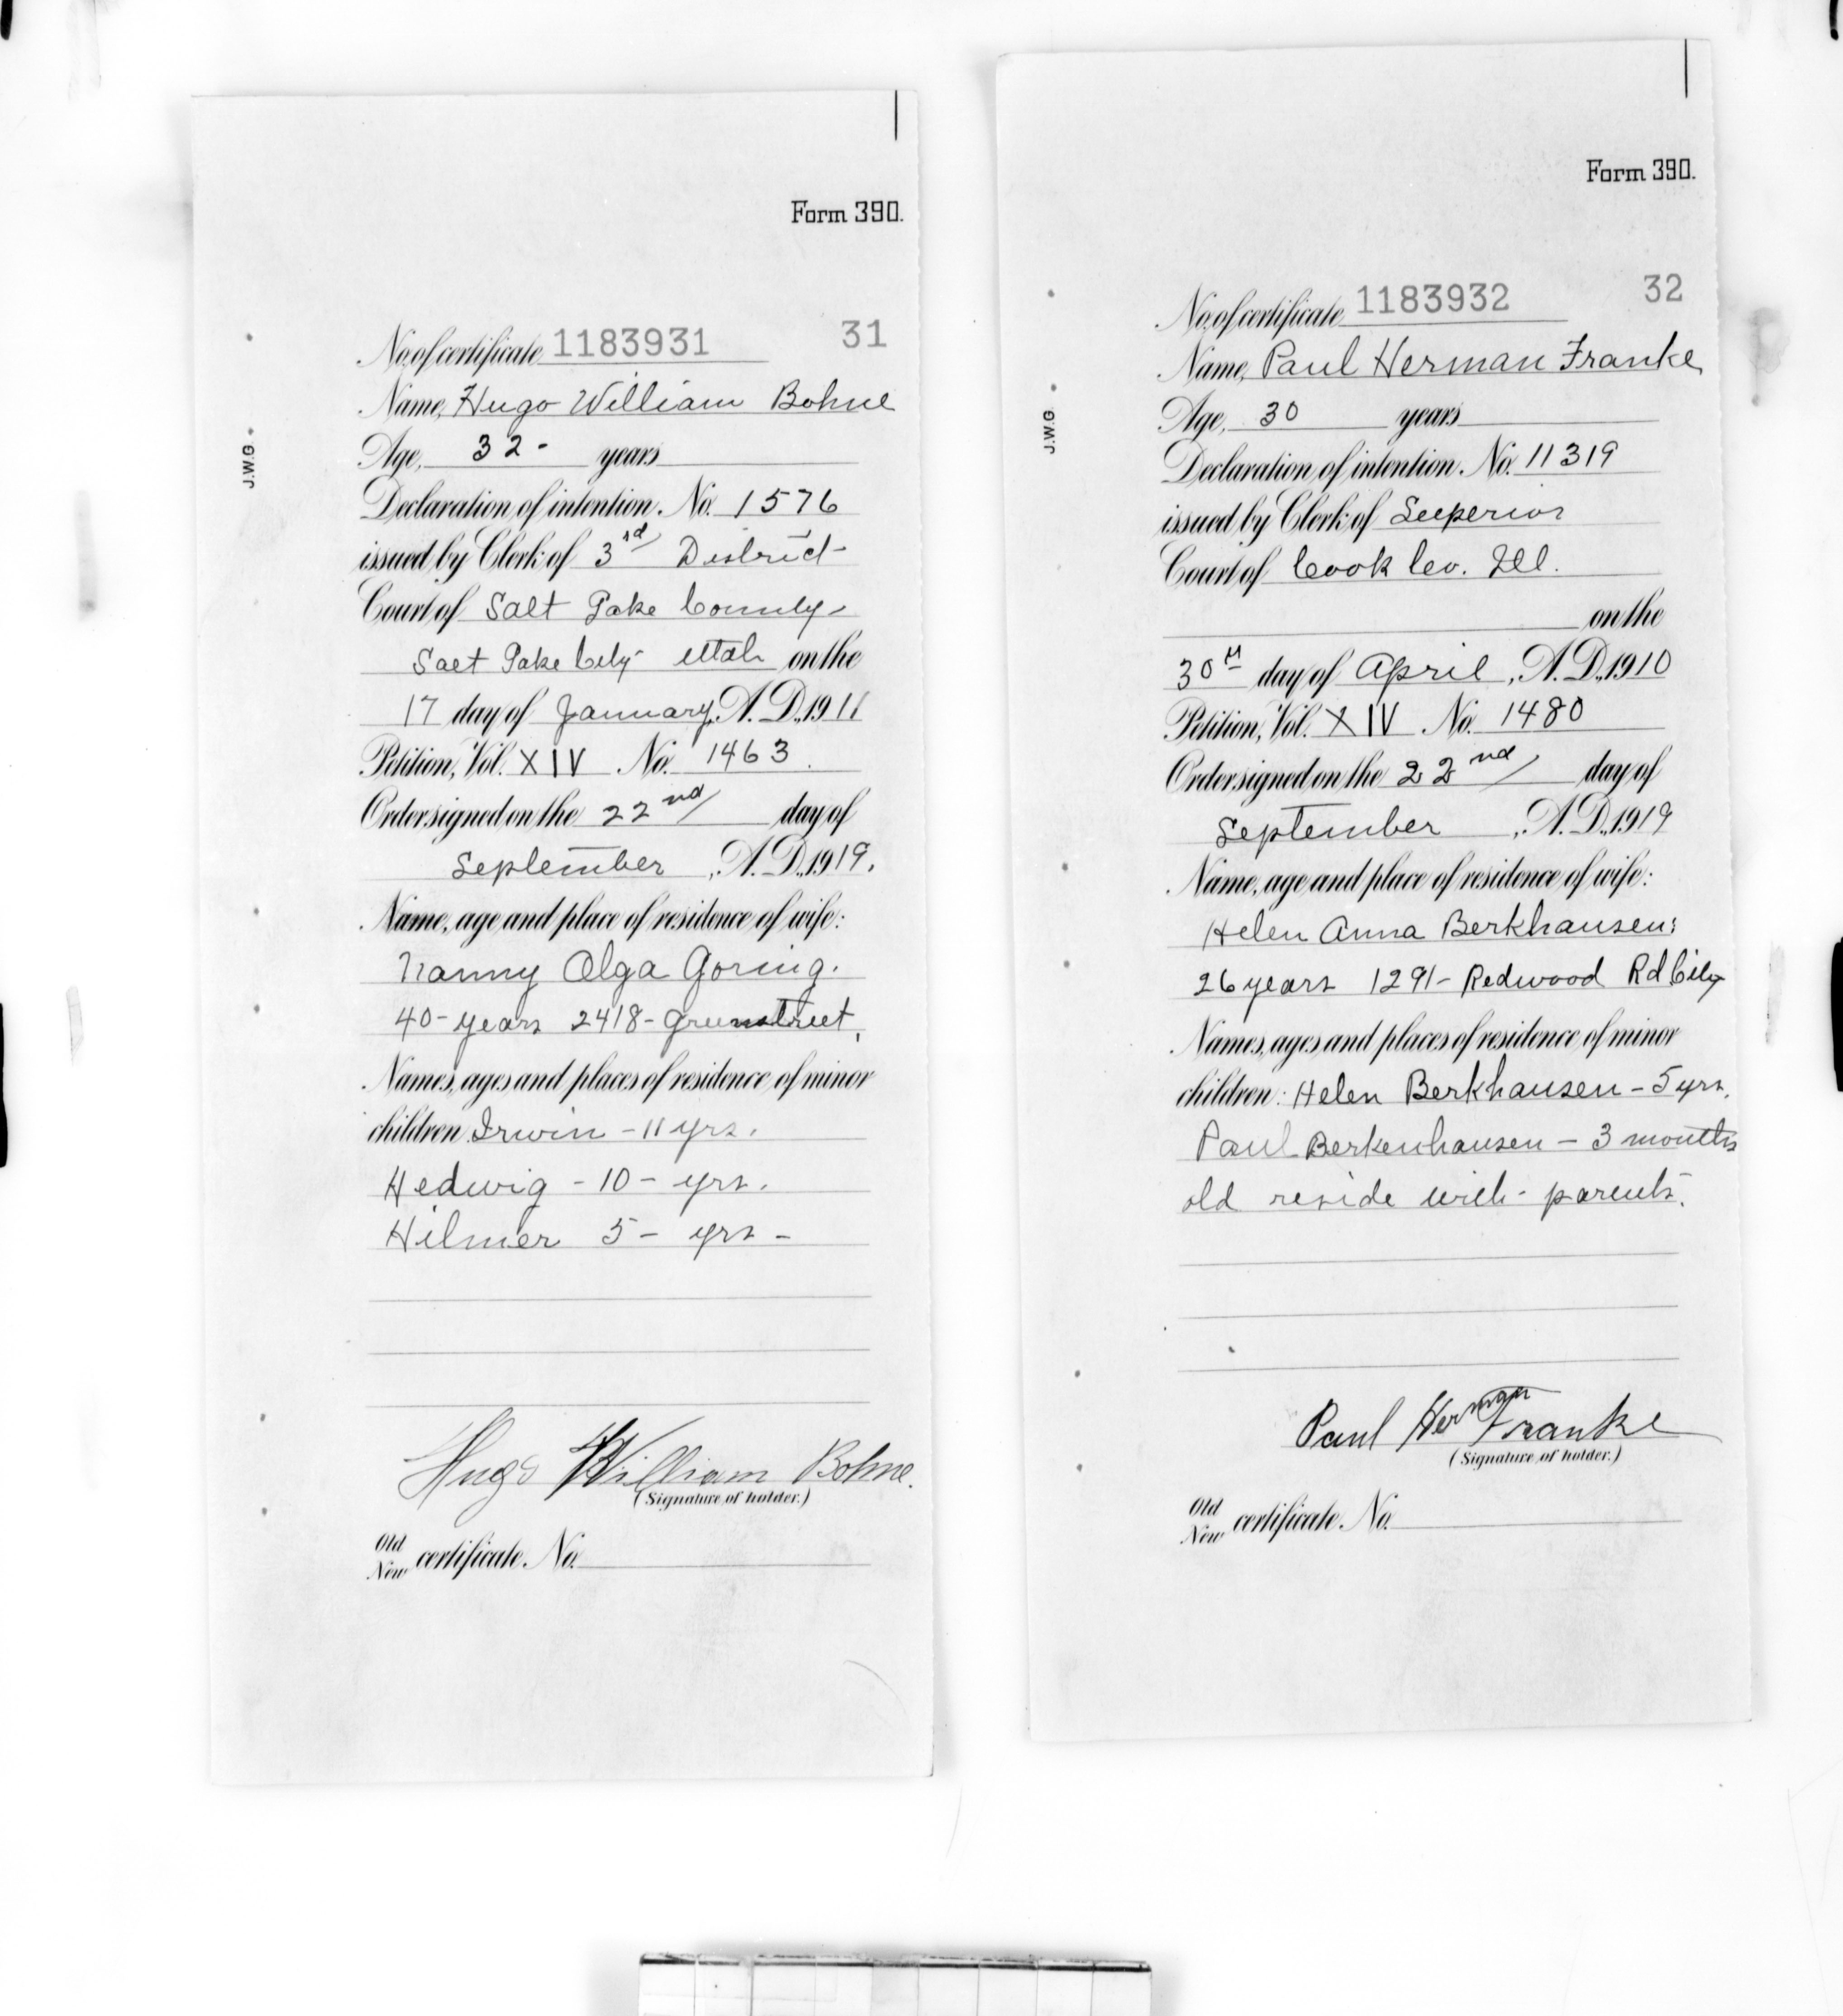 Form 390.
No. of certificate 1183931 31
Name, Hugo William Bohne
Age, 32 - years
Declaration of intention. No. 1576
issued by Clerk of 3rd District
Court of Salt Lake County
Salt Lake City Utah on the
17 day of January, A. D., 1911
Petition, Vol. XIV No. 1463
Order signed on the 22nd day of
September, A. D., 1919.
Name, age and place of residence of wife:
Nanny Olga Goring.
40 - years 2418 - Green street,
Names, ages and places of residence of minor
children Irwin - 11 yrs.
Hedwig - 10 - yrs.
Hilmer 5 - yrs -
Hugo William Bohne.
(Signature of holder.)
Old
New certificate. No.
J.W.G.
Form 390.
No. of certificate 1183932 32
Name, Paul Herman Franke
Age, 30 years
Declaration of intention. No. 11319
issued by Clerk of Superior
Court of Cook Co. Ill.
on the
30th day of April, A. D., 1910
Petition, Vol. XIV No. 1480
Order signed on the 22nd day of
September, A. D., 1919
Name, age and place of residence of wife:
Helen Anna Berkhausen:
26 years 1291 - Redwood Rd City
Names, ages and places of residence of minor
children: Helen Berkhausen - 5 yrs,
Paul Berkenhausen - 3 months
old reside with - parents.
Paul Herman Franke
(Signature of holder.)
Old
New certificate. No.
J.W.G.